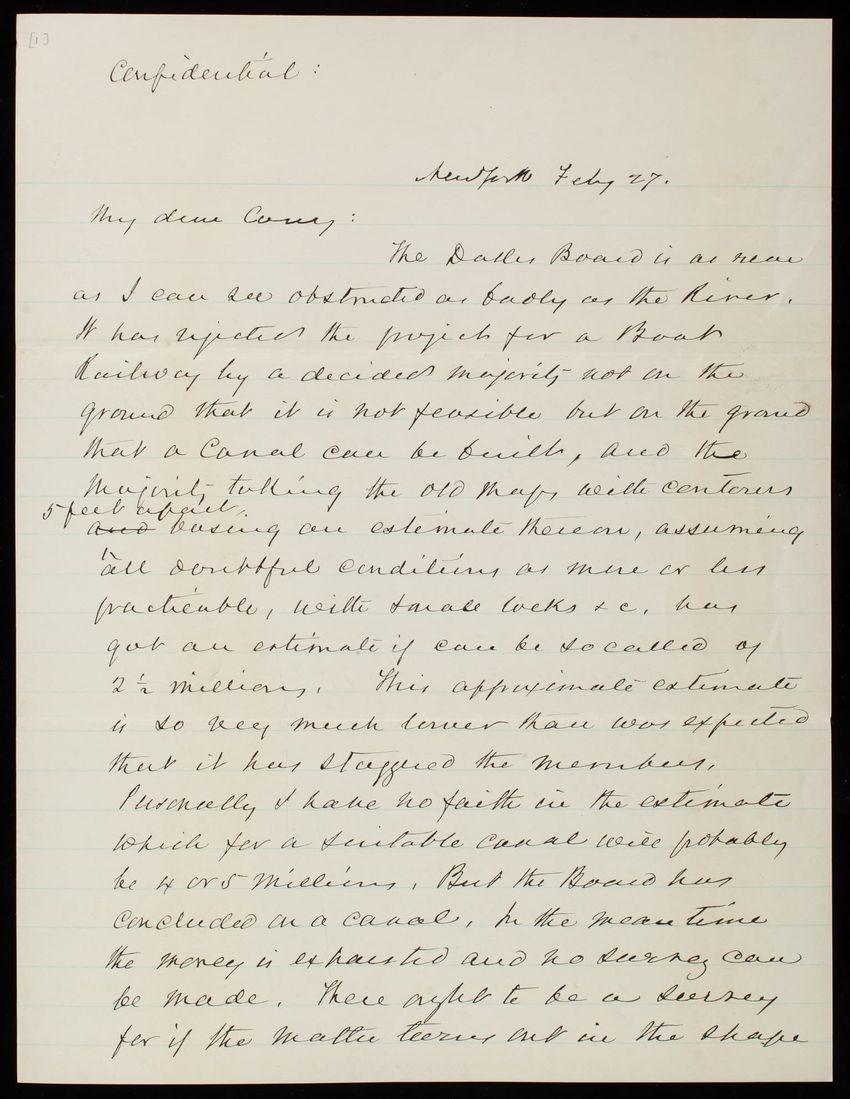 [1]
Confidential:
New York Feby 27.
My dear Casey:
The Dalles Board is as near
as I can see obstructed as badly as the River.
It has rejected the project for a Boat
Railway by a decided majority not on the
ground that it is not feasible but on the ground
that a Canal can be built, and the
majority taking the old maps with contours
5 feet apart
and basing an estimate thereon, assuming
all doubtful conditions as more or less
practicable, with small locks &c, has
got an estimate if can be so called of
2 1/2 millions. This approximate estimate
is so very much lower than was expected
that it has staggered the members.
Personally I have no faith in the estimate
which for a suitable canal will probably
be 4 or 5 millions. But the Board has
concluded on a canal. In the mean time
the money is exhausted and no survey can
be made. There ought to be a survey
for if the matter turns out in the shape